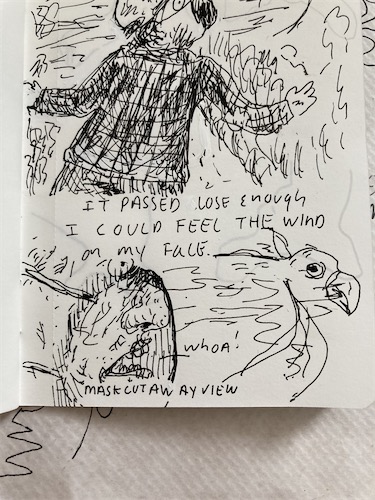 IT PASSED LOSE ENOUGH
I COULD FEEL THE WIND
ON MY FALE.
WHOA!
MASK CUT AWAY VIEW